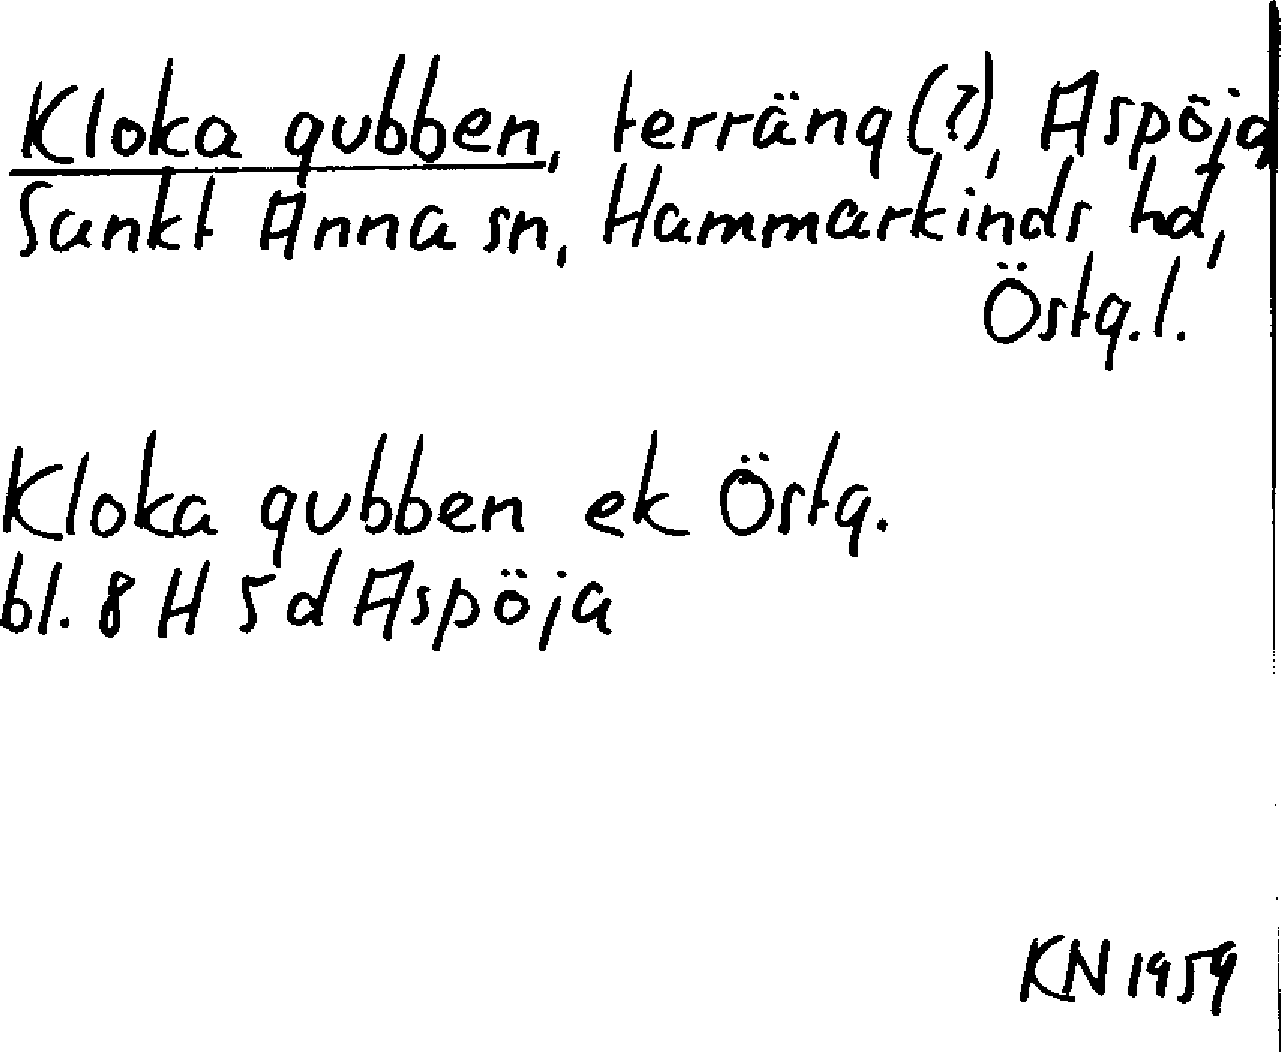 Kloka gubben, terräng(?), Aspöja,
Sankt Anna sn, Hammarkinds hd,
Östg.l.
Kloka gubben ek Östg.
bl. 8 H 5 d Aspöja
KN 1959